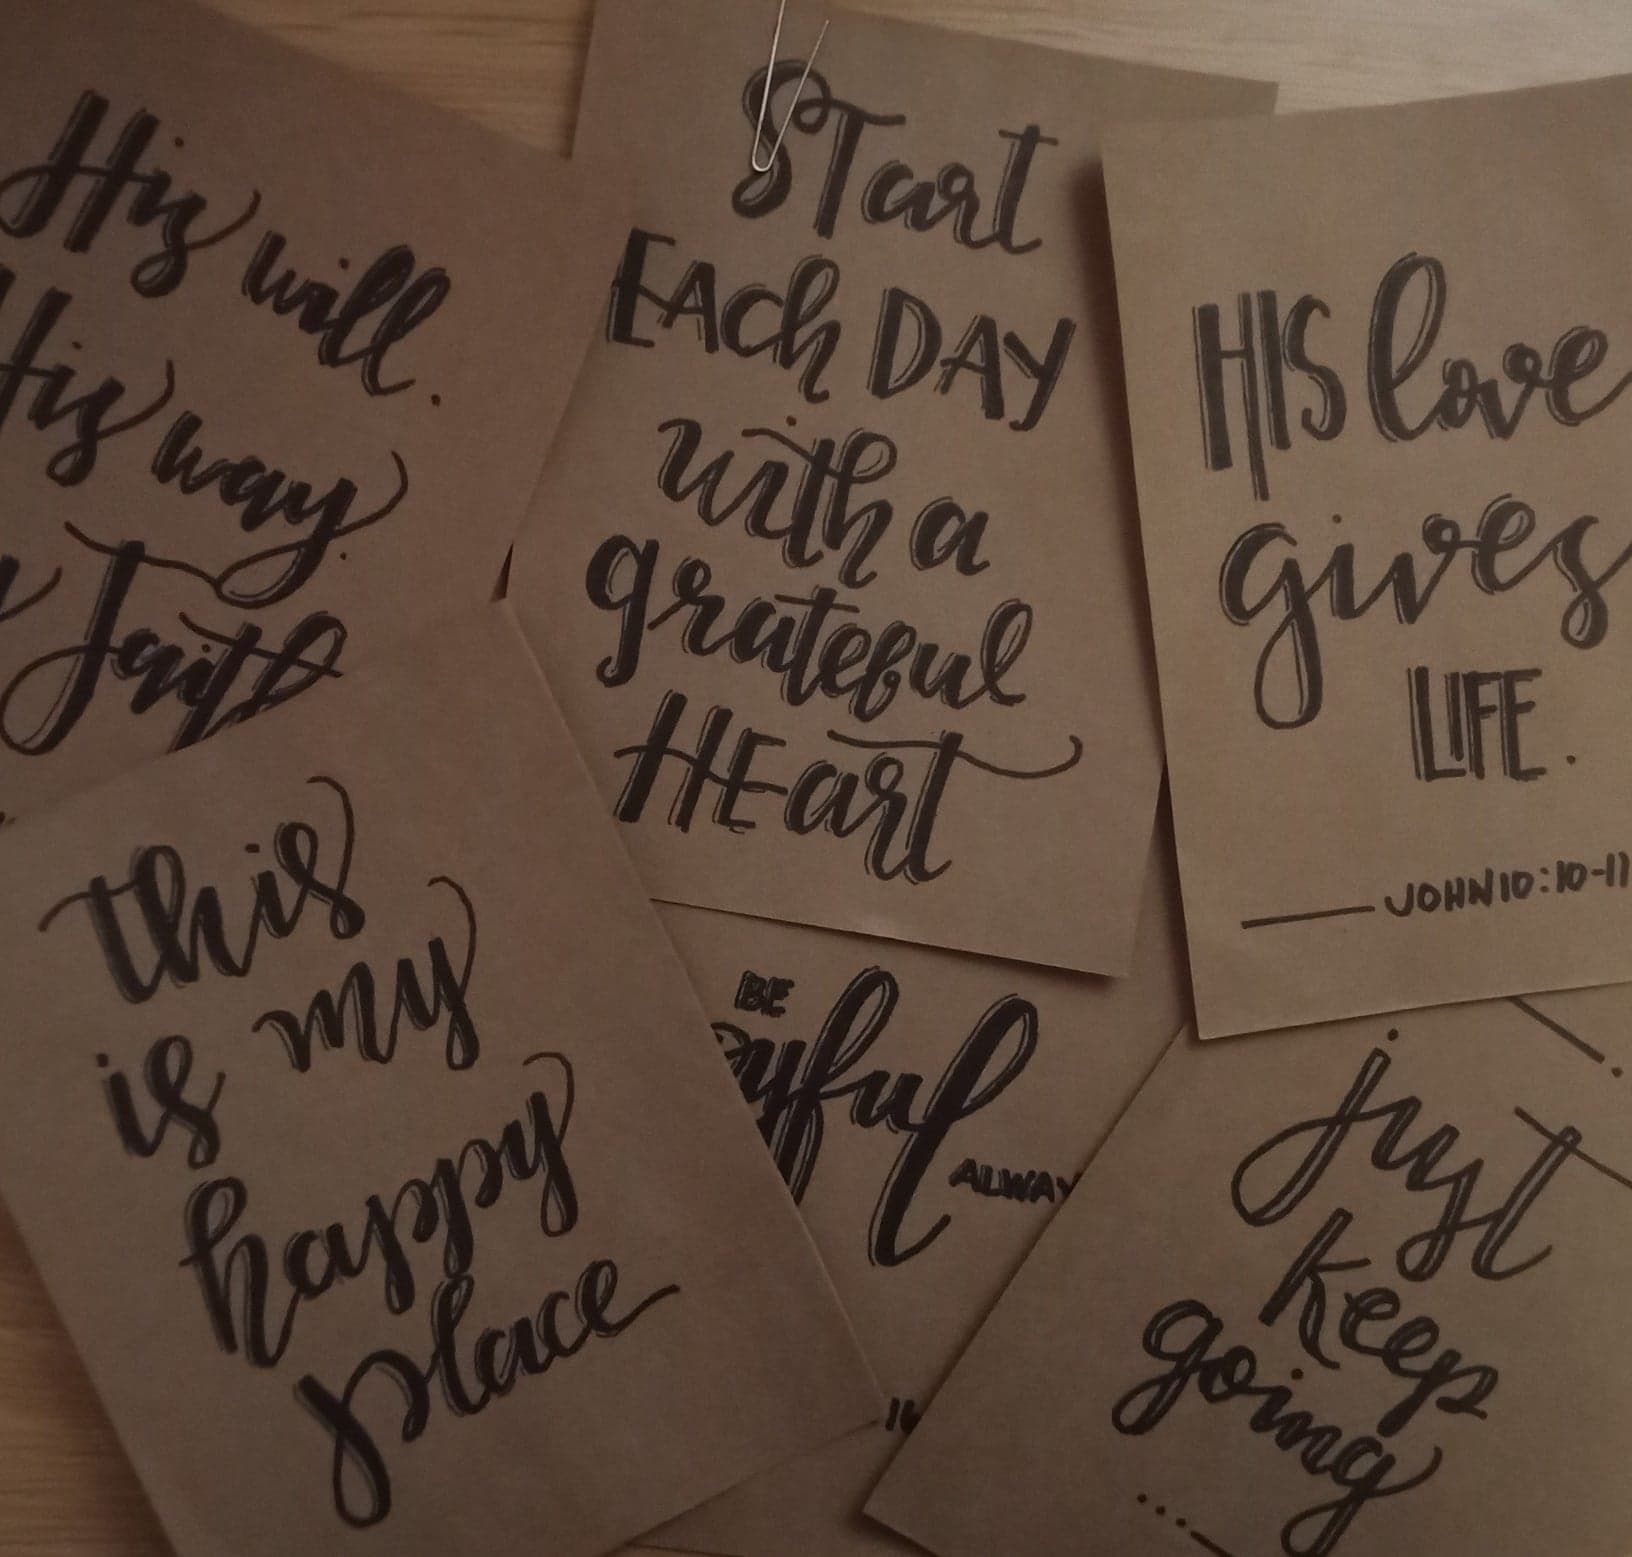 His will.
His way.
Faith
START
EACh DAY
with a
grateful
HEart
HIS love
gives
LIFE.
JOHN 10:10-11
this
is my
happy
place
BE
ALWAY
just
keep
going
....